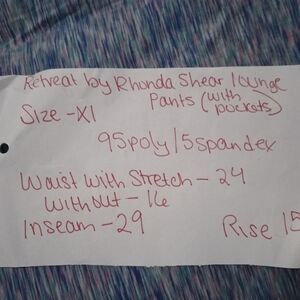 Retreat by Rhonda Shear lounge
Pants (with
pockets)
Size - Xl
95poly/5spandex
Waist with Stretch - 24
without - 16
Inseam - 29
Rise 15